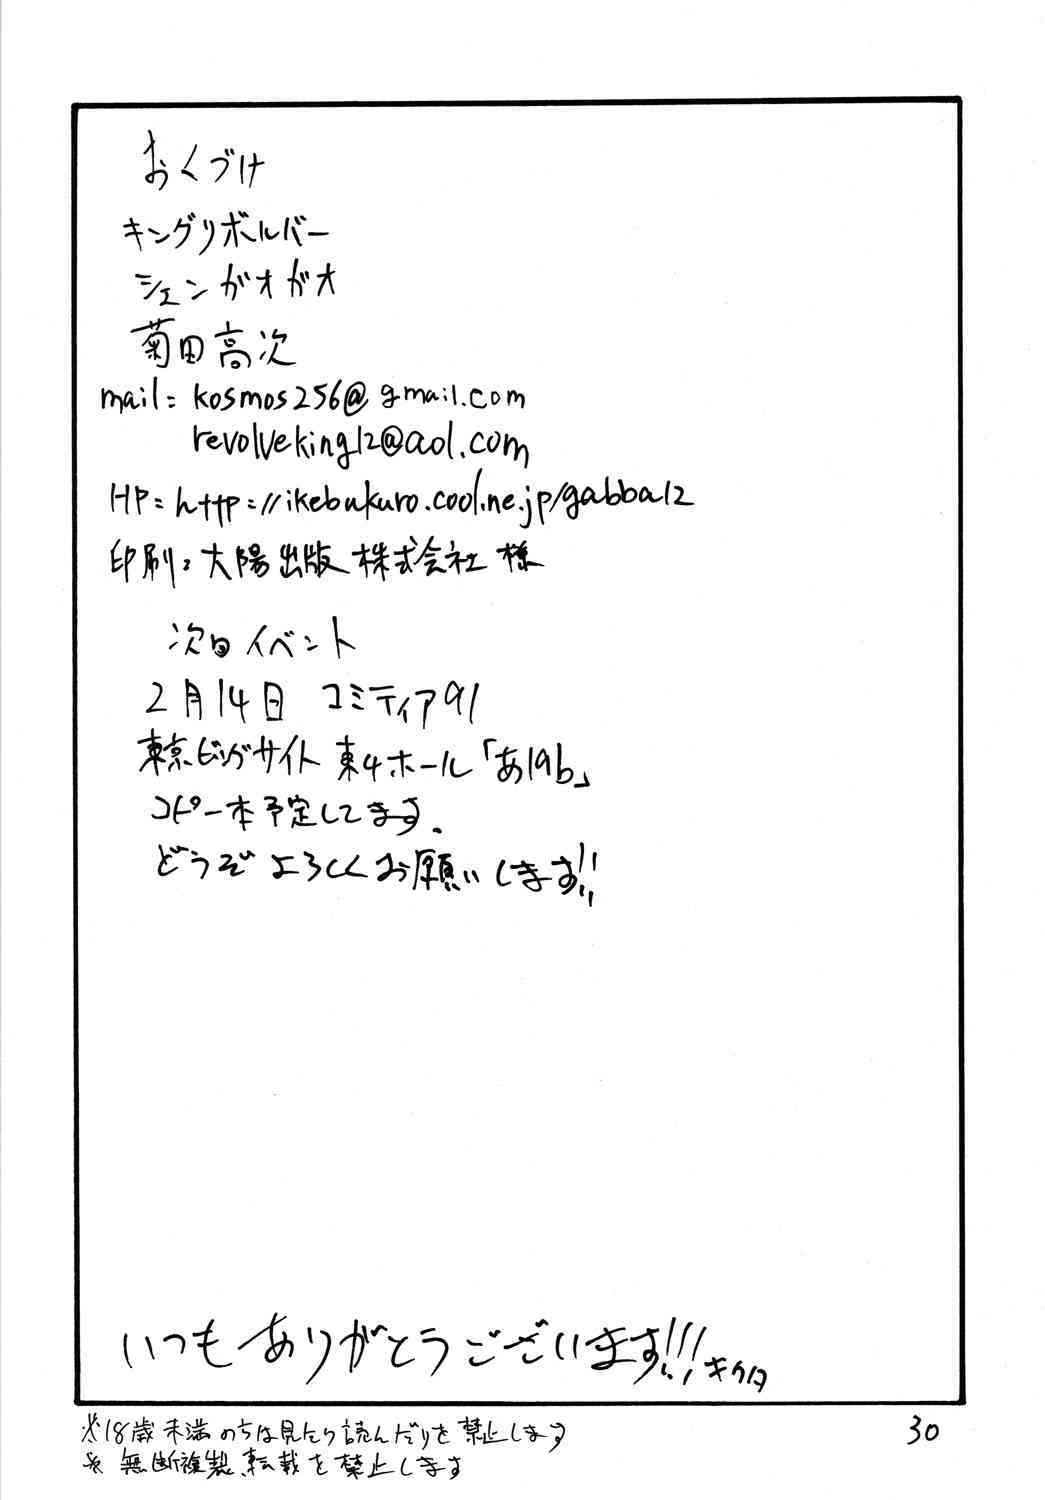 おくづけ
キングリボルバー
シェンガオガオ
菊田高次
mail= kosmos256@gmail.com
revolveking12@aol.com
HP=http://ikebukuro.cool.ne.jp/gabba12
印刷:大陽出版株式会社様
次回イベント
2月14日 コミティア91
東京ビッグサイト 東4ホール「あ19b」
コピー本予定してます.
どうぞよろしくお願いします!!
いつもありがとうございます!!!
キクタ
※18歳未満のちは見たり読んだりを禁止します
※無断複製、転載を禁止します
30